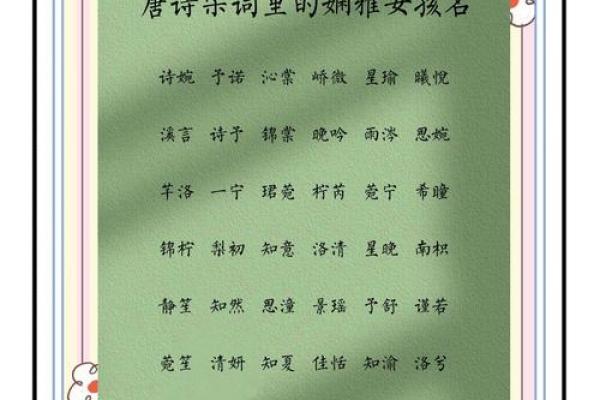 唐诗宋词里的娴雅女孩名
诗婉 予诺 沁棠 峤微 星瑜 曦悦
溪言 诗予 锦棠 晚吟 雨涔 思婉
芊洛 一宁 珺菀 柠芮 菀宁 希瞳
锦柠 梨初 知意 洛清 星晚 南枳
静笙 知然 思潼 景瑶 予舒 谨若
菀笙 清妍 知夏 佳恬 知渝 洛兮